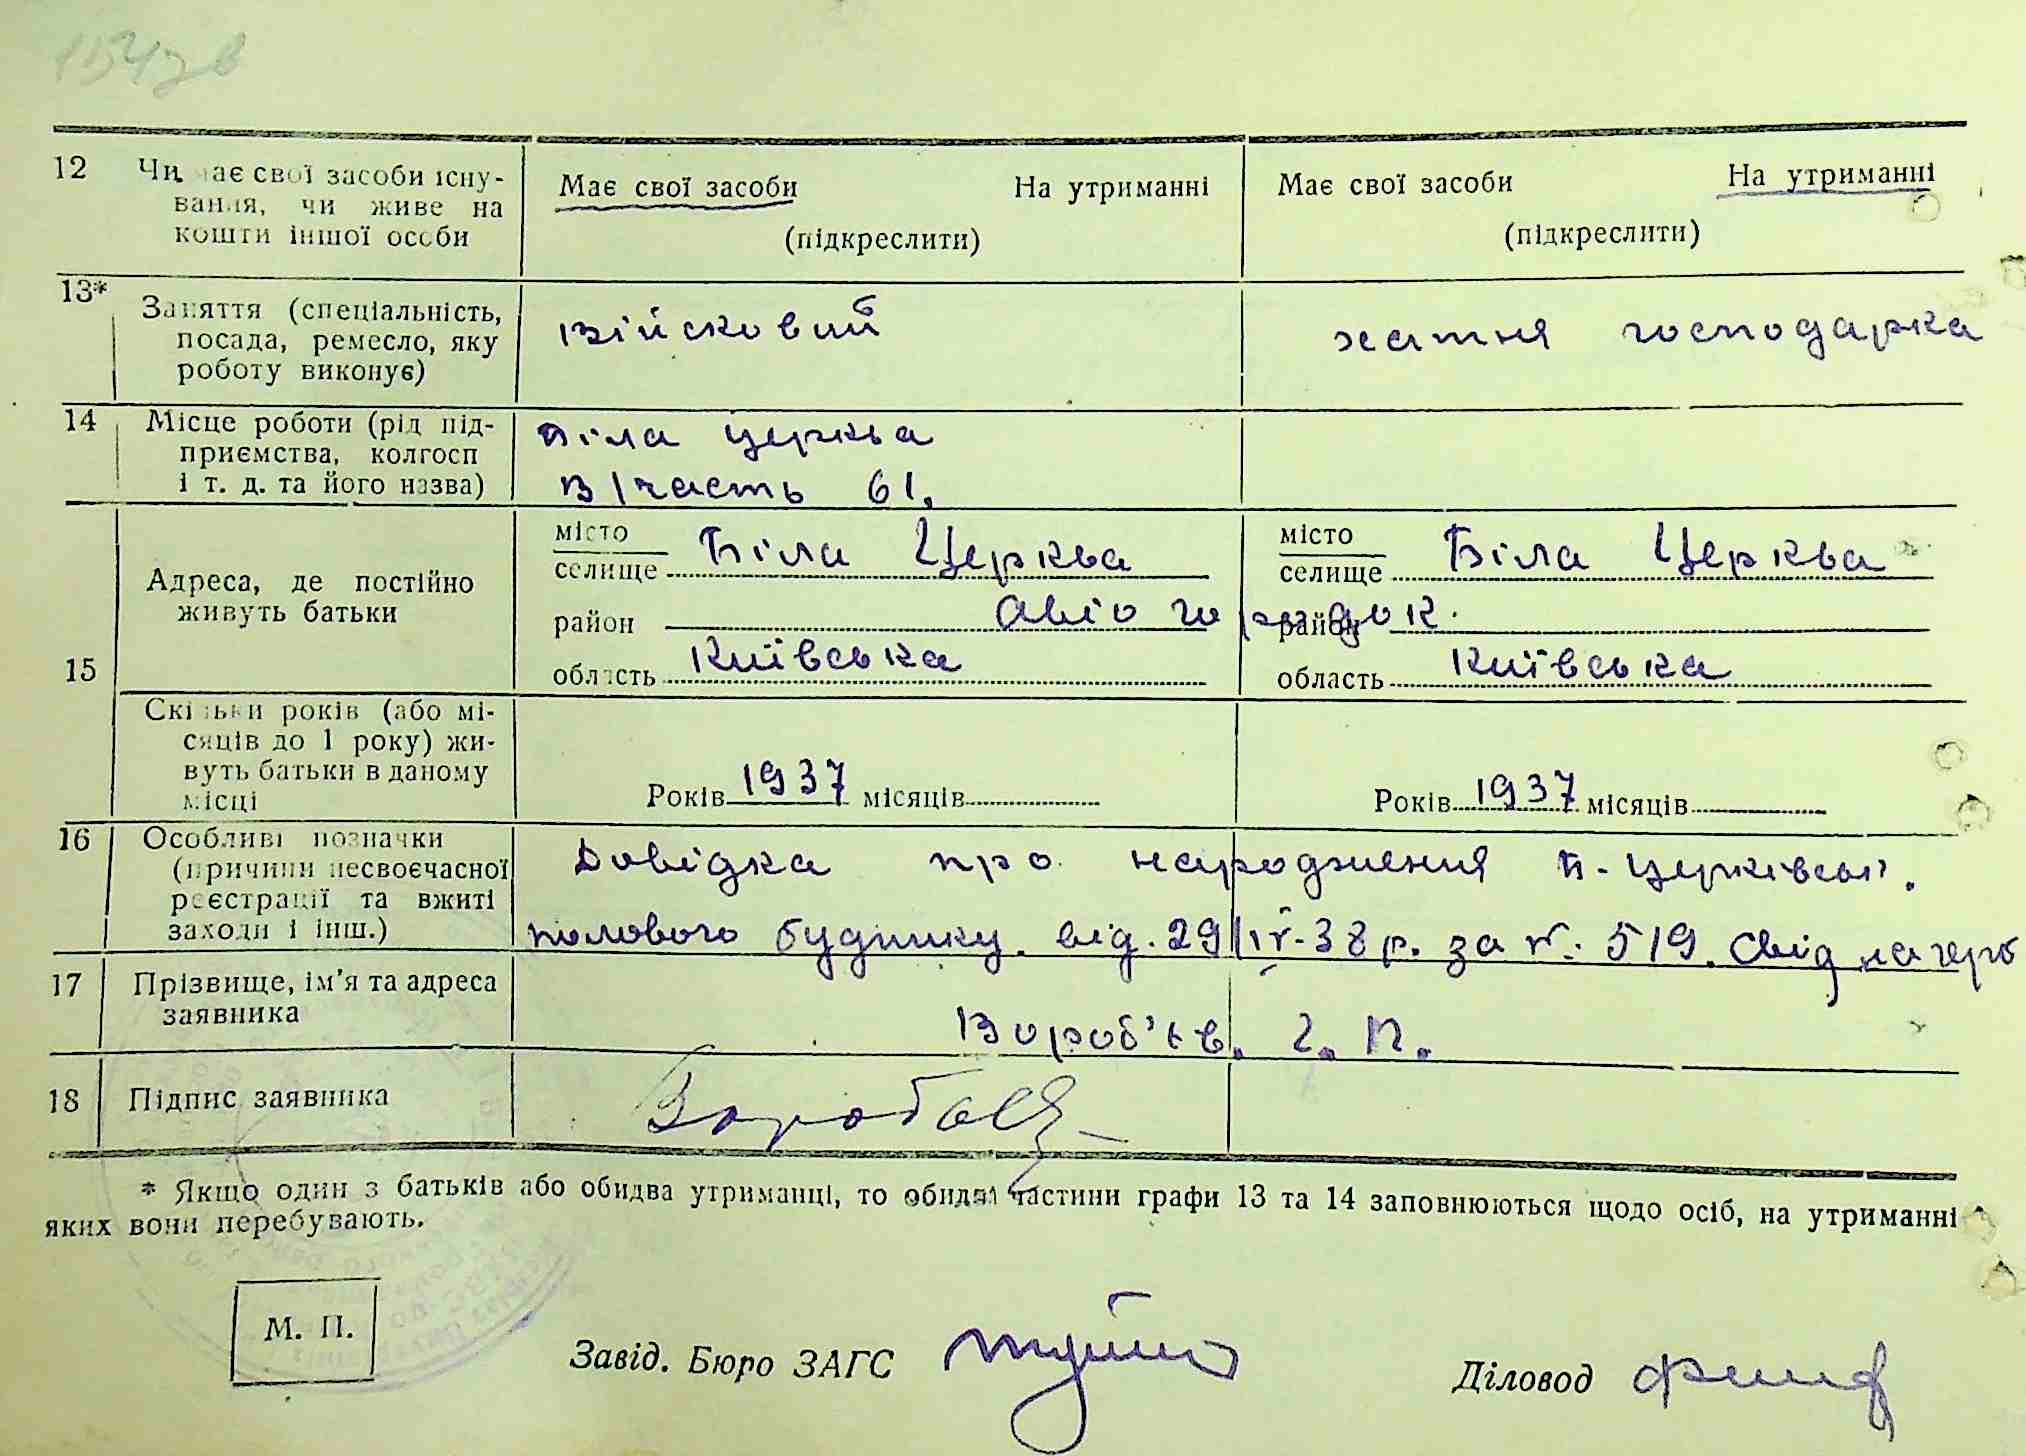 12 Чи має свої засоби існування, чи живе на кошти іншої особи
Має свої засоби На утриманні
(підкреслити)
Має свої засоби На утриманні
(підкреслити)
13* Заняття (спеціальність,
посада, ремесло, яку
роботу виконує)
Військовий
хатня господарка
14 Місце роботи (рід під-
приємства, колгосп
і т. д. та його назва)
Біла церква
в/часть 61.
15
Адреса, де постійно
живуть батьки
місто
селище Біла Церква
район авіо городок.
область Київська
місто
селище Біла Церква
район
область Київська
Скільки років (або мі-
сяців до 1 року) жи-
вуть батьки в даному
місці
Років 1937 місяців
Років 1937 місяців
16 Особливі позначки
(причини несвоєчасної
реєстрації та вжиті
заходи і інш.)
Довідка про народження Б-церківськ.
полового будинку. від. 29/IV-38 р. за №. 519.
17 Прізвище, ім'я та адреса
заявника
Вороб'єв. Г. П.
18 Підпис заявника
* Якщо один з батьків або обидва утриманці, то обидві частини графи 13 та 14 заповнюються щодо осіб, на утриманні
яких вони перебувають.
М. П.
Завід. Бюро ЗАГС
Діловод